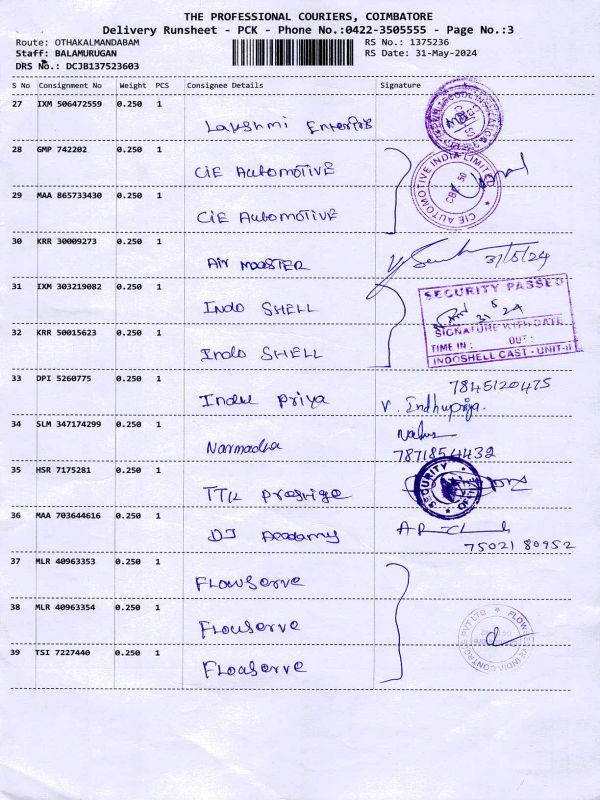 THE PROFESSIONAL COURIERS, COIMBATORE
Delivery Runsheet - PCK - Phone No.:0422-3505555 - Page No.:3
Route: OTHAKALMANDABAM RS No.: 1375236
Staff: BALAMURUGAN RS Date: 31-May-2024
DRS No.: DCJB137523603
S No Consignment No Weight PCS Consignee Details Signature
27 IXM 506472559 0.250 1
Lakshmi
28 GMP 742202 0.250 1
CIE AUTOMOTIVE
CIE AUTOMOTIVE INDIA LIMITED
29 MAA 865733430 0.250 1
CIE AUTOMOTIVE
30 KRR 30009273 0.250 1
AIR MASTER 31/5/24
31 IXM 303219082 0.250 1
INDO SHELL
SECURITY PASSED
31 5 24
SIGNATURE WITH DATE
32 KRR 50015623 0.250 1
INDO SHELL
TIME IN : OUT :
INDOSHELL CAST - UNIT-II
33 DPI 5260775 0.250 1
7845120475
Indu priya V. Indhupriya.
34 SLM 347174299 0.250 1
Narmadha
7871854432
35 HSR 7175281 0.250 1
TTK Prestige
SECURITY
36 MAA 703644616 0.250 1
DJ Academy
75021 80952
37 MLR 40963353 0.250 1
FLOWServe
38 MLR 40963354 0.250 1
FLOWServe
FLOWSERVE INDIA CONTROLS PVT LTD
39 TSI 7227440 0.250 1
FLOWServe